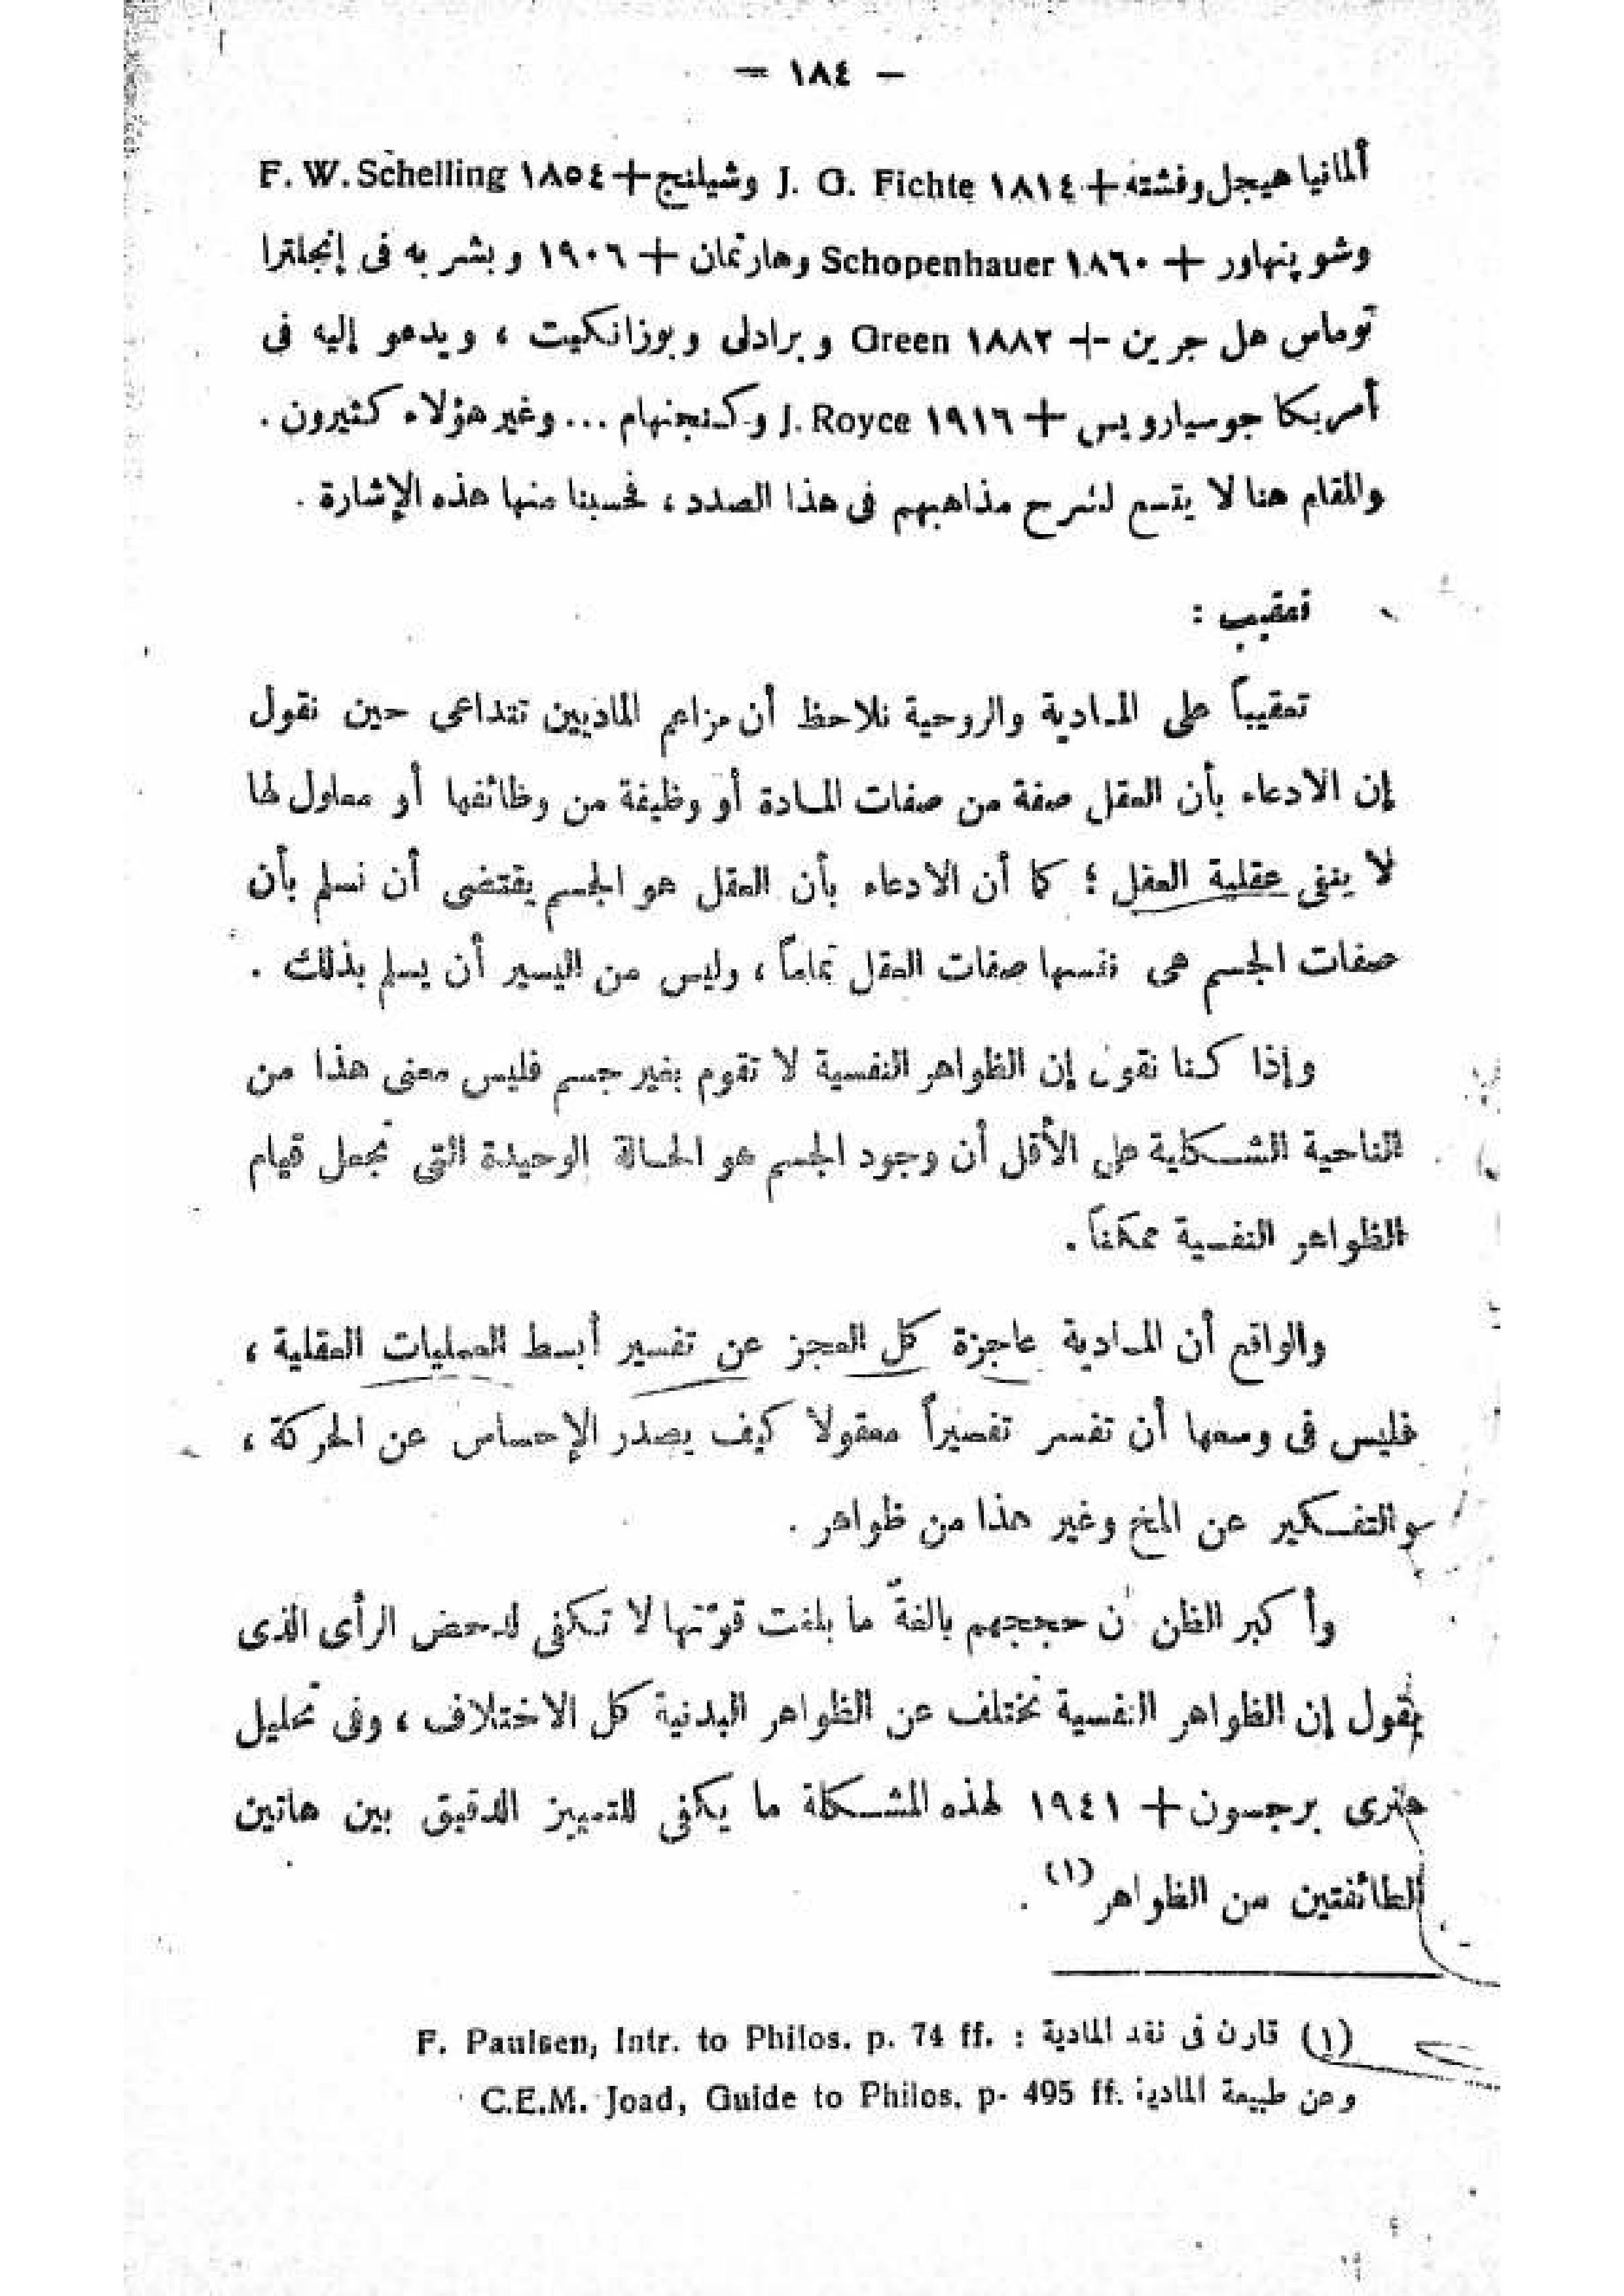 — ١٨٤ —
ألمانيا هيجل وفشته + ١٨١٤ J. G. Fichte وشيلنج + ١٨٥٤ F. W. Schelling
وشوپنهاور + ١٨٦٠ Schopenhauer وهارتمان + ١٩٠٦ وبشر به فى إنجلترا
توماس هل جرين + ١٨٨٢ Green وبرادلى وبوزانكيت ، ويدعو إليه فى
أمريكا جوسيارويس + ١٩١٦ J. Royce وكننجنهام ... وغير هؤلاء كثيرون .
والمقام هنا لا يتسع لشرح مذاهبهم فى هذا الصدد ، فحسبنا منها هذه الإشارة .
تعقيب :
تعقيباً على المادية والروحية نلاحظ أن مزاعم الماديين تتداعى حين نقول
إن الادعاء بأن العقل صفة من صفات المادة أو وظيفة من وظائفها أو معلول لها
لا ينفى عقلية العقل ؛ كما أن الادعاء بأن العقل هو الجسم يقتضى أن نسلم بأن
صفات الجسم هى نفسها صفات العقل تماماً ، وليس من اليسير أن يسلم بذلك .
وإذا كنا نقول إن الظواهر النفسية لا تقوم بغير جسم فليس معنى هذا من
الناحية الشكلية على الأقل أن وجود الجسم هو الحالة الوحيدة التى تجعل قيام
الظواهر النفسية ممكناً .
والواقع أن المادية عاجزة كل العجز عن تفسير أبسط العمليات العقلية ،
فليس فى وسعها أن تفسر تفسيراً معقولا كيف يصدر الإحساس عن الحركة ،
والتفكير عن المخ وغير هذا من ظواهر .
وأكبر الظن أن حججهم بالغةً ما بلغت قوّتها لا تكفى لدحض الرأى الذى
يقول إن الظواهر النفسية تختلف عن الظواهر البدنية كل الاختلاف ، وفى تحليل
هنرى برجسون + ١٩٤١ لهذه المشكلة ما يكفى للتمييز الدقيق بين هاتين
الطائفتين من الظواهر (١) .
(١) قارن فى نقد المادية : F. Paulsen, Intr. to Philos. p. 74 ff.
وعن طبيعة المادية C.E.M. Joad, Guide to Philos. p- 495 ff.